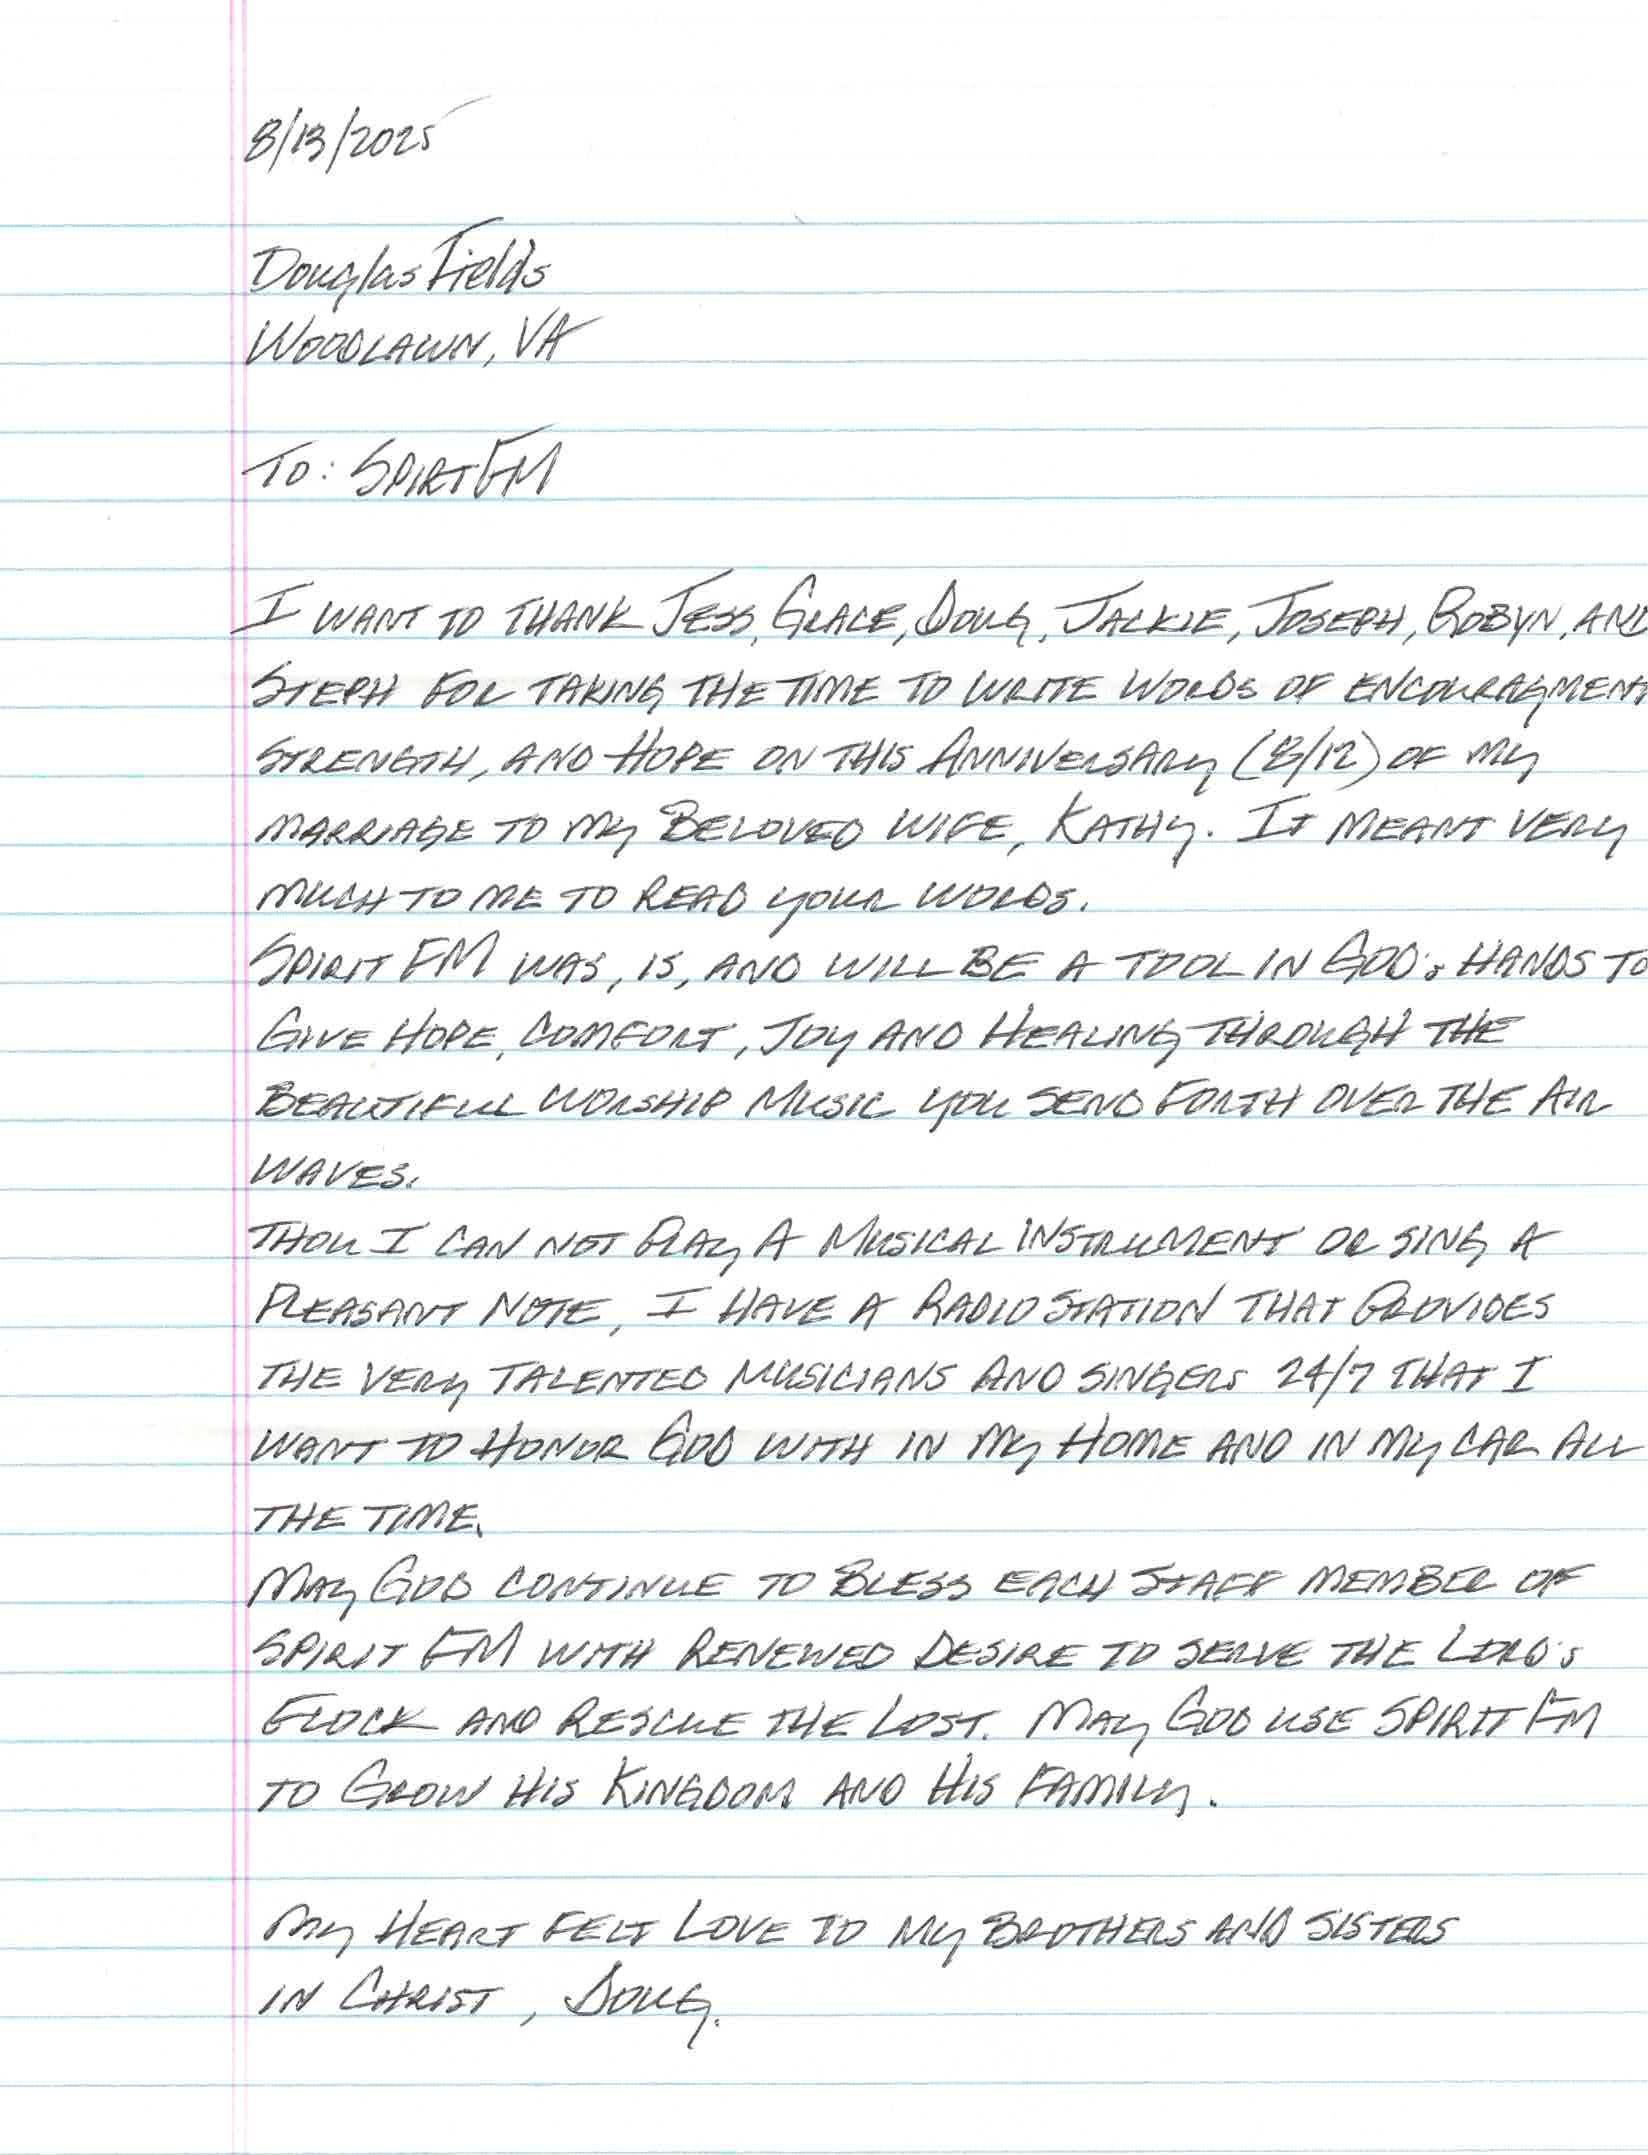 8/13/2025
Douglas Fields
WOODLAWN, VA
TO: SPIRT FM
I WANT TO THANK JESS, GRACE, DOUG, JACKIE, JOSEPH, ROBYN, AND
STEPH FOR TAKING THE TIME TO WRITE WORDS OF ENCOURAGMENT
STRENGTH, AND HOPE ON THIS ANNIVERSARY (8/12) OF MY
MARRIAGE TO MY BELOVED WIFE, KATHY. IT MEANT VERY
MUCH TO ME TO READ YOUR WORDS.
SPIRIT FM WAS, IS, AND WILL BE A TOOL IN GOD'S HANDS TO
GIVE HOPE, COMFORT, JOY AND HEALING THROUGH THE
BEAUTIFUL WORSHIP MUSIC YOU SEND FORTH OVER THE AIR
WAVES.
THOU I CAN NOT PLAY A MUSICAL INSTRUMENT OR SING A
PLEASANT NOTE, I HAVE A RADIO STATION THAT PROVIDES
THE VERY TALENTED MUSICIANS AND SINGERS 24/7 THAT I
WANT TO HONOR GOD WITH IN MY HOME AND IN MY CAR ALL
THE TIME.
MAY GOD CONTINUE TO BLESS EACH STAFF MEMBER OF
SPIRIT FM WITH RENEWED DESIRE TO SERVE THE LORD'S
FLOCK AND RESCUE THE LOST. MAY GOD USE SPIRIT FM
TO GROW HIS KINGDOM AND HIS FAMILY.
MY HEART FELT LOVE TO MY BROTHERS AND SISTERS
IN CHRIST, DOUG.